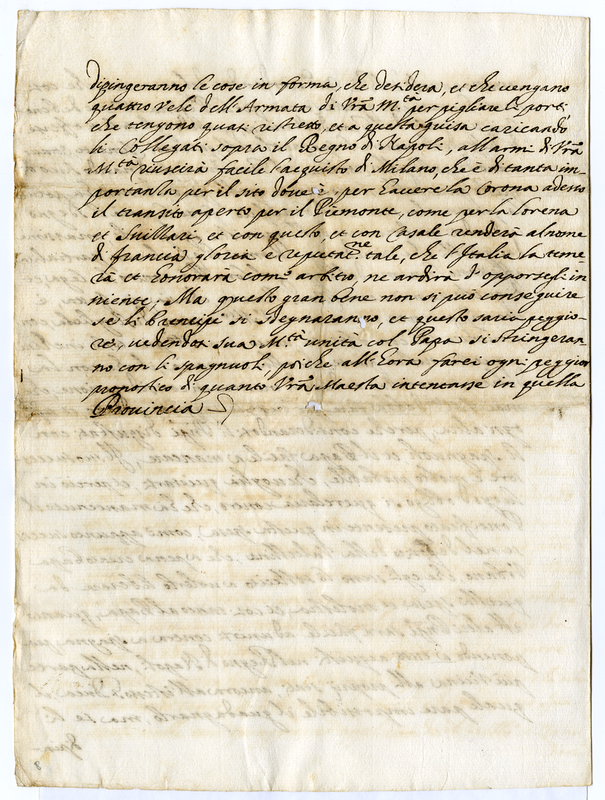 dipingeranno le cose in forma, che desidera, et che vengano
quattro Vele dell'Armata di Vrã M.tà per pigliare li porti
che tengono quasi ristretto, et a questa guisa caricando
li Collegati sopra il Regno di Napoli, all'armi di Vrã
M.tà riuscirà facile l'acquisto di Milano, che è di tanta im-
portanza per il sito dove è, per havere la Corona adesso
il transito aperto per il Piemonte, come per la Lorena
et Suillari, et con questo, et con Casale renderà al nome
di francia gloria e reputat.ne tale, che l'Italia la teme-
rà et honorarà com'arbitro, ne ardirà d'opporseli in
niente; Ma questo gran bene non si può conseguire
se li Prencipi si sdegnaranno, et questo saria peggio-
re, vedendosi sua M.tà unita col Papa si stringeran
no con li spagnuoli, poiche all'hora farei ogni peggior
pronostico di quanto Vrã Maesta intentasse in quella
Provincia
8